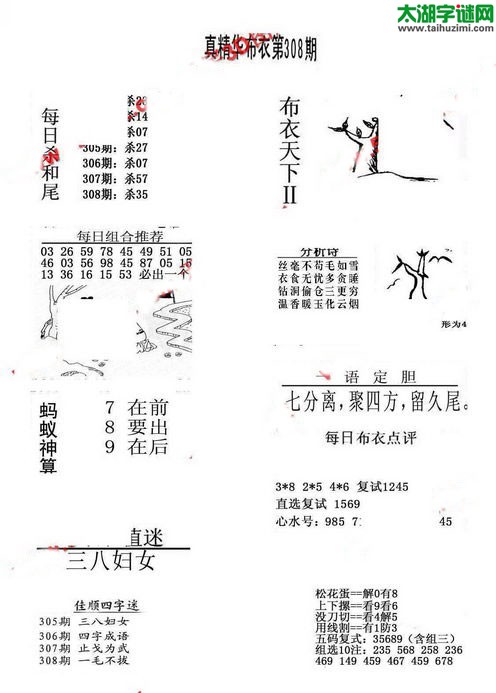 太湖字谜网
www.taihuzimi.com
真精华布衣第308期
每日杀和尾
杀14
杀07
305期: 杀27
306期: 杀07
307期: 杀57
308期: 杀35
布衣天下II
每日组合推荐
03 26 59 78 45 49 51 05
46 03 56 98 45 87 05 15
13 36 16 15 53 必出一个
分析诗
丝毫不苟毛如雪
衣食无忧多贪睡
钻洞偷仓三更穷
温香暖玉化云烟
形为4
蚂蚁神算
7 在前
8 要出
9 在后
一语定胆
七分离,聚四方,留久尾。
每日布衣点评
3*8 2*5 4*6 复试1245
直选复试 1569
心水号: 985 7 45
直迷
三八妇女
佳顺四字迷
305期 三八妇女
306期 四字成语
307期 止戈为武
308期 一毛不拔
松花蛋==解0有8
上下摞==看9看6
没刀切==看4解5
用线割==有1防3
五码复式: 35689 (含组三)
组选10注: 235 568 258 236
469 149 459 467 458 679